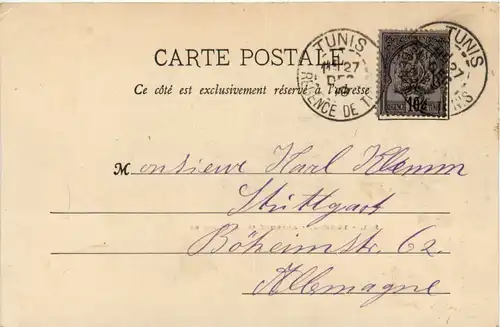 TUNIS
11 27
DEC
REGENCE DE T
TUNIS
27
NIS
10c
CARTE POSTALE
Ce côté est exclusivement réservé à l'adresse
Monsieur Karl Klemm
Stuttgart
Böheimstr. 62.
Allemagne